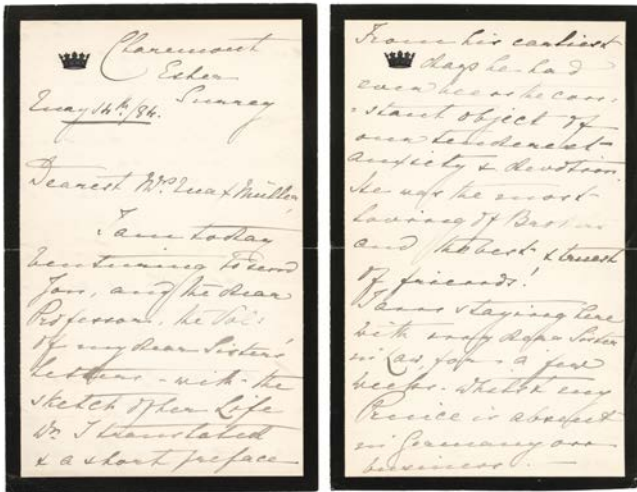 Claremont
Esher
Surrey
May 14th/84.
Dearest Mrs. Max Müller,
I am today
venturing to send
You, and the dear
Professor, the Vol:
of my dear Sister's
letters - with the
sketch of her Life
wh. I translated
& a short preface
From his earliest
days he had
ever been the con-
-stant object of
our tenderest
anxiety & devotion.
He was the most
loving of Brothers
and the best & truest
of friends!
I am staying here
with my dear Sister
in Law, for a few
weeks - whilst my
Prince is absent
in Germany on
business.